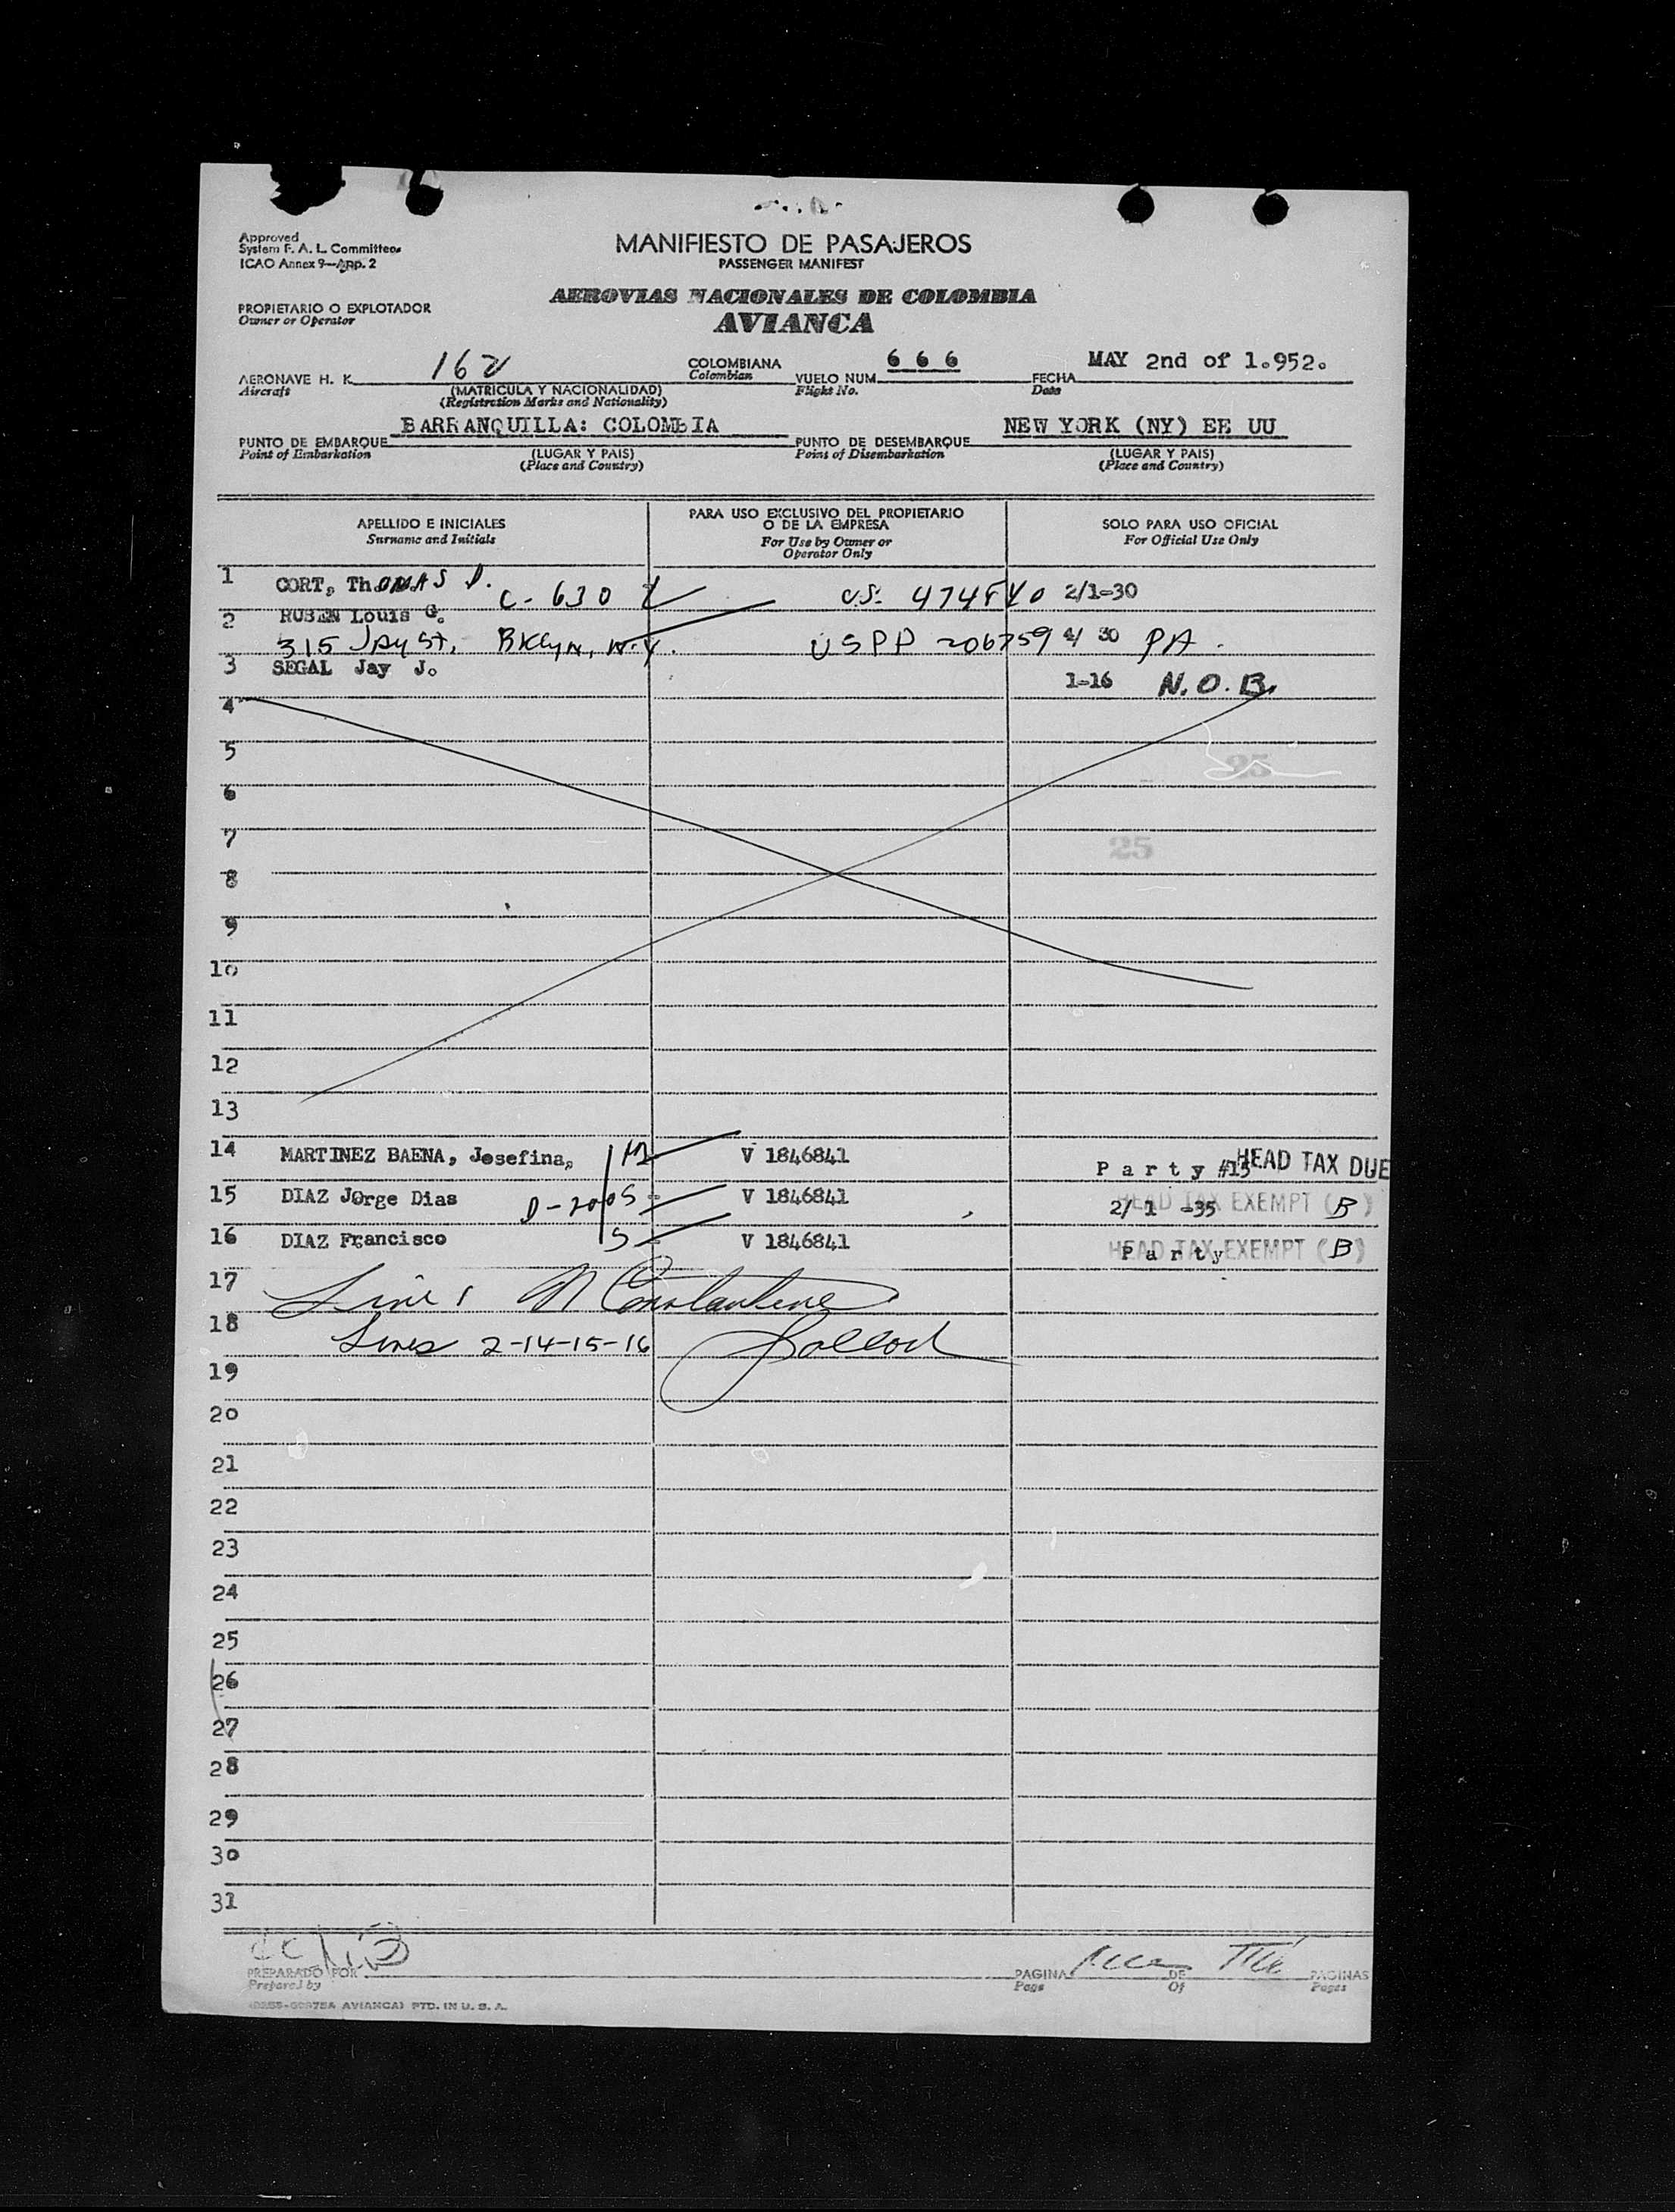 Approved
System F. A. L. Committee
ICAO Annex 9—App. 2
MANIFIESTO DE PASAJEROS
PASSENGER MANIFEST
PROPIETARIO O EXPLOTADOR
Owner or Operator
AEROVIAS NACIONALES DE COLOMBIA
AVIANCA
AERONAVE H. K. 162 COLOMBIANA VUELO NUM. 666 FECHA MAY 2nd of 1.952.
Aircraft Colombian Flight No. Date
(MATRICULA Y NACIONALIDAD)
(Registration Marks and Nationality)
PUNTO DE EMBARQUE BARRANQUILLA: COLOMBIA PUNTO DE DESEMBARQUE NEW YORK (NY) EE UU
Point of Embarkation (LUGAR Y PAIS) Point of Disembarkation (LUGAR Y PAIS)
(Place and Country) (Place and Country)
APELLIDO E INICIALES
Surname and Initials
PARA USO EXCLUSIVO DEL PROPIETARIO
O DE LA EMPRESA
For Use by Owner or
Operator Only
SOLO PARA USO OFICIAL
For Official Use Only
1 CORT, Thomas D. C-630 U.S. 2/1-30
2 RUBEN Louis G.
315 Jay St, Bklyn, N.Y. USPP 206759 4/30 PA.
3 SEGAL Jay J. 1-16 N.O.B.
4
5
25
6
7
25
8
9
10
11
12
13
14 MARTINEZ BAENA, Josefina, M V 1846841 Party #15 HEAD TAX DUE
15 DIAZ Jorge Dias D-200 S V 1846841 2/1 -35 HEAD TAX EXEMPT (B)
16 DIAZ Francisco S V 1846841 Party HEAD TAX EXEMPT (B)
17 Line 1 N Constantine
18 Lines 2-14-15-16
19
20
21
22
23
24
25
26
27
28
29
30
31
PREPARADO POR
Prepared by
PAGINA DE PAGINAS
Page Of Pages
AVIANCA) PTD. IN U. S. A.